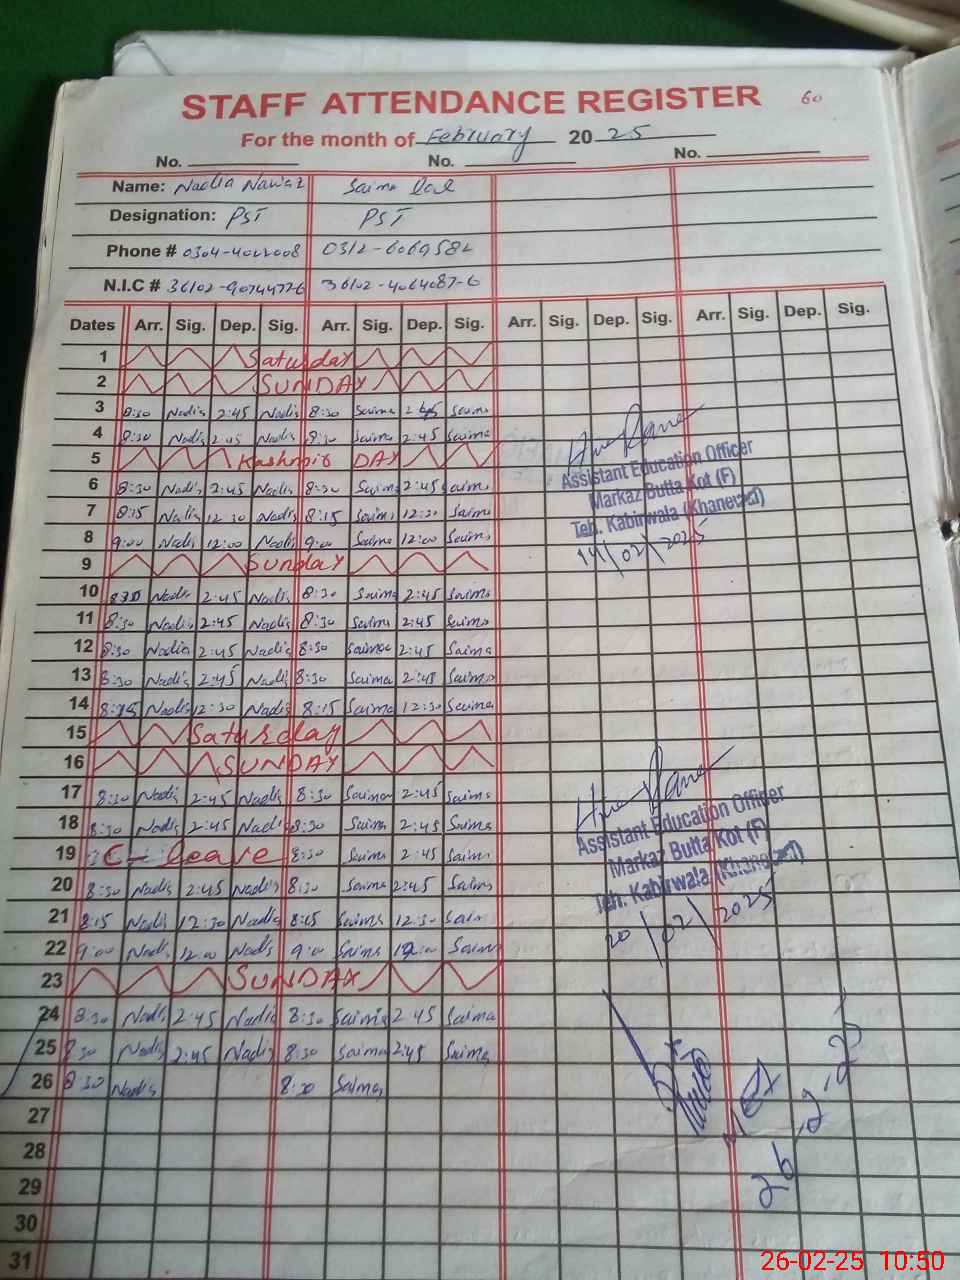 STAFF ATTENDANCE REGISTER 60
For the month of February 2025
No. No. No.
Name: Nadia Nawaz Saima
Designation: PST PST
Phone # 0312-6069582
N.I.C # 36102-9074477-6 36102-4064087-6
Dates Arr. Sig. Dep. Sig. Arr. Sig. Dep. Sig. Arr. Sig. Dep. Sig. Arr. Sig. Dep. Sig.
1 Saturday
2 SUNDAY
3 8:30 Nadia 2:45 Nadia 8:30 Saima 2:45 Saima
4 8:30 Nadia 2:45 Nadia 8:30 Saima 2:45 Saima
5 Kashmir DAY
6 8:30 Nadia 2:45 Nadia 8:30 Saima 2:45 Saima
7 8:15 Nadia 12:30 Nadia 8:15 Saima 12:30 Saima
8 9:00 Nadia 12:00 Nadia 9:00 Saima 12:00 Saima
9 Sunday
10 8:30 Nadia 2:45 Nadia 8:30 Saima 2:45 Saima
11 8:30 Nadia 2:45 Nadia 8:30 Saima 2:45 Saima
12 8:30 Nadia 2:45 Nadia 8:30 Saima 2:45 Saima
13 8:30 Nadia 2:45 Nadia 8:30 Saima 2:45 Saima
14 8:15 Nadia 12:30 Nadia 8:15 Saima 12:30 Saima
15 Saturday
16 SUNDAY
17 8:30 Nadia 2:45 Nadia 8:30 Saima 2:45 Saima
18 8:30 Nadia 2:45 Nadia 8:30 Saima 2:45 Saima
19 C-leave 8:30 Saima 2:45 Saima
20 8:30 Nadia 2:45 Nadia 8:30 Saima 2:45 Saima
21 8:15 Nadia 12:30 Nadia 8:15 Saima 12:30 Saima
22 9:00 Nadia 12:00 Nadia 9:00 Saima 12:00 Saima
23 SUNDAY
24 8:30 Nadia 2:45 Nadia 8:30 Saima 2:45 Saima
25 8:30 Nadia 2:45 Nadia 8:30 Saima 2:45 Saima
26 8:30 Nadia 8:30 Saima
27
28
29
30
31
Assistant Education Officer
Markaz Butta Kot (F)
Teh. Kabirwala (Khanewal)
14/02/2025
Assistant Education Officer
Markaz Butta Kot (F)
Teh. Kabirwala (Khanewal)
20/02/2025
26-2-25
26-02-25 10:50